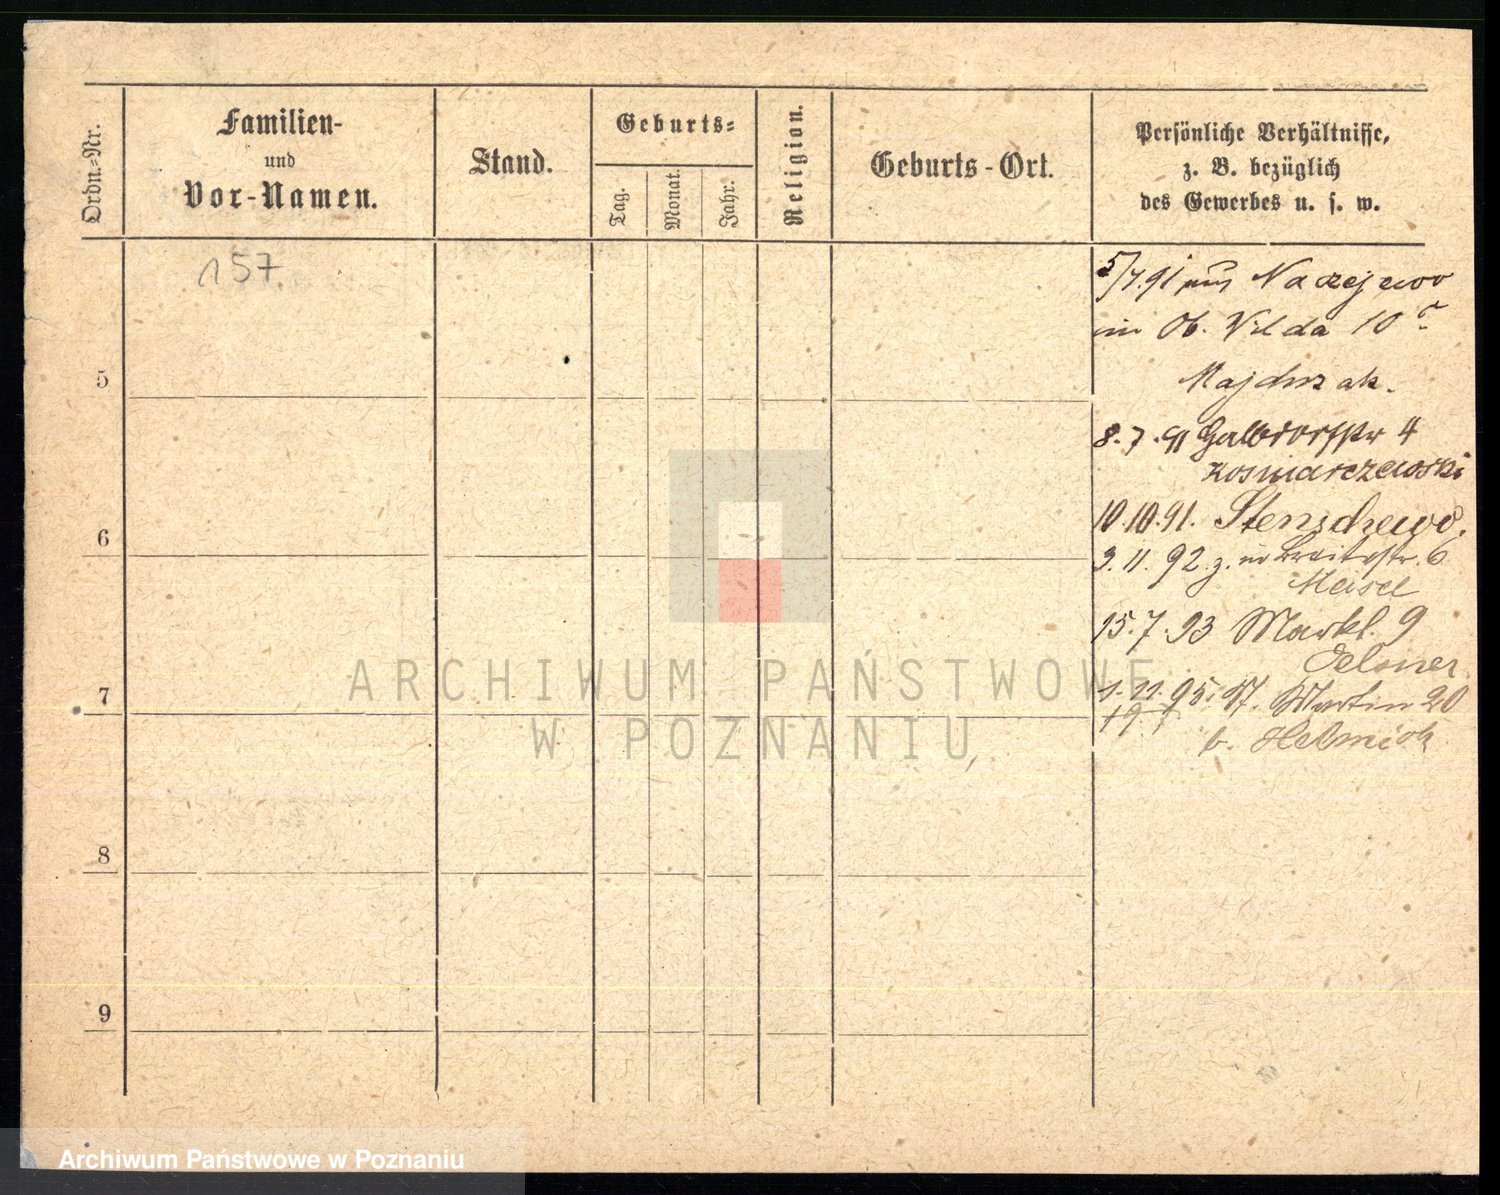 Ordn.-Nr.
Familien-
und
Vor-Namen.
Stand.
Geburts-
Tag.
Monat.
Jahr.
Religion.
Geburts-Ort.
Persönliche Verhältnisse,
z. B. bezüglich
des Gewerbes u. s. w.
157
5/7.91 aus
in Ob. Wilda 10
Majchrzak.
5
8.7.91 4
Kosmarczewski
10.10.91. Stenschewo.
6
3.11.92 z. Breitestr. 6
Meisel
15.7.93 Markt. 9
Oelsner
7
1.11.95. Martin 20
b.
8
9
ARCHIWUM PAŃSTWOWE
W POZNANIU
Archiwum Państwowe w Poznaniu